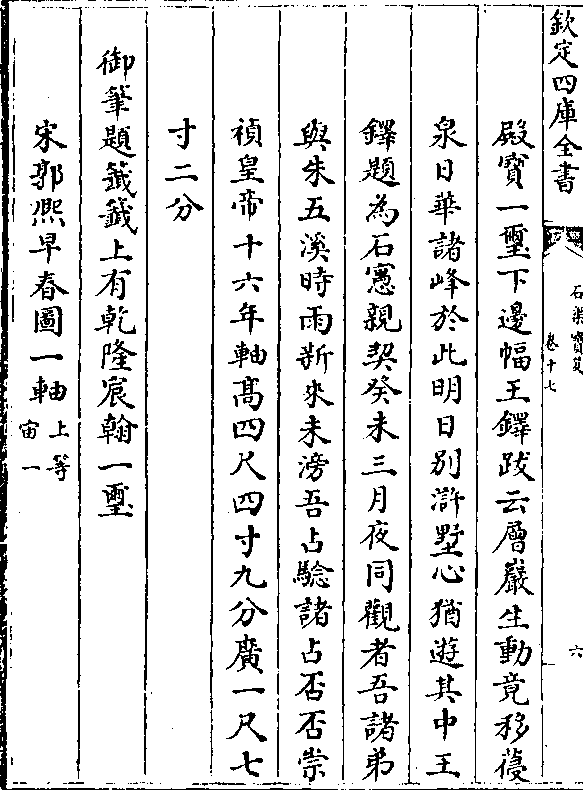 欽定四庫全書
石渠寶笈
卷十七
六
殿寶一璽下邊幅王鐸跋云層巖生動竟移蓡
泉日華諸峰於此明日别滸墅心猶遊其中王
鐸題為石憲親契癸未三月夜同觀者吾諸弟
與朱五溪時雨新來未滂吾占驗諸占否否崇
禎皇帝十六年軸髙四尺四寸九分廣一尺七
寸二分
御筆題籖籖上有乾隆宸翰一璽
宋郭熙早春圖一軸上等
宙一